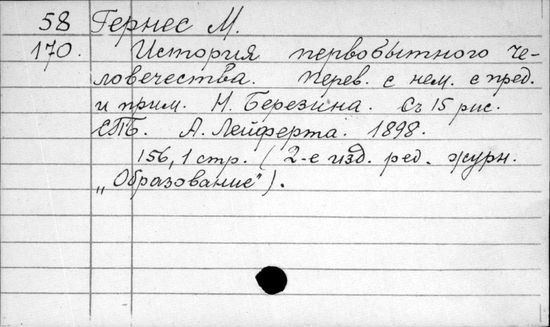 58 Гернес М.
170. История первобытного че-
ловечества. Перев. с нем. с пред.
и прим. Н. Березина. Съ 15 рис.
СПБ. А. Лейферта. 1898.
156,1 стр. (2-е изд. ред. журн.
„Образование").